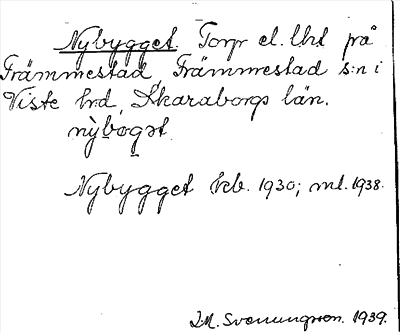 Nybygget. Torp el. lht på
Främmestad, Främmestad s:n i
Viste hrd, Skaraborgs län.
nỳbogət
Nybygget kb. 1930; ml. 1938.
I.M. Svenungsson. 1939.